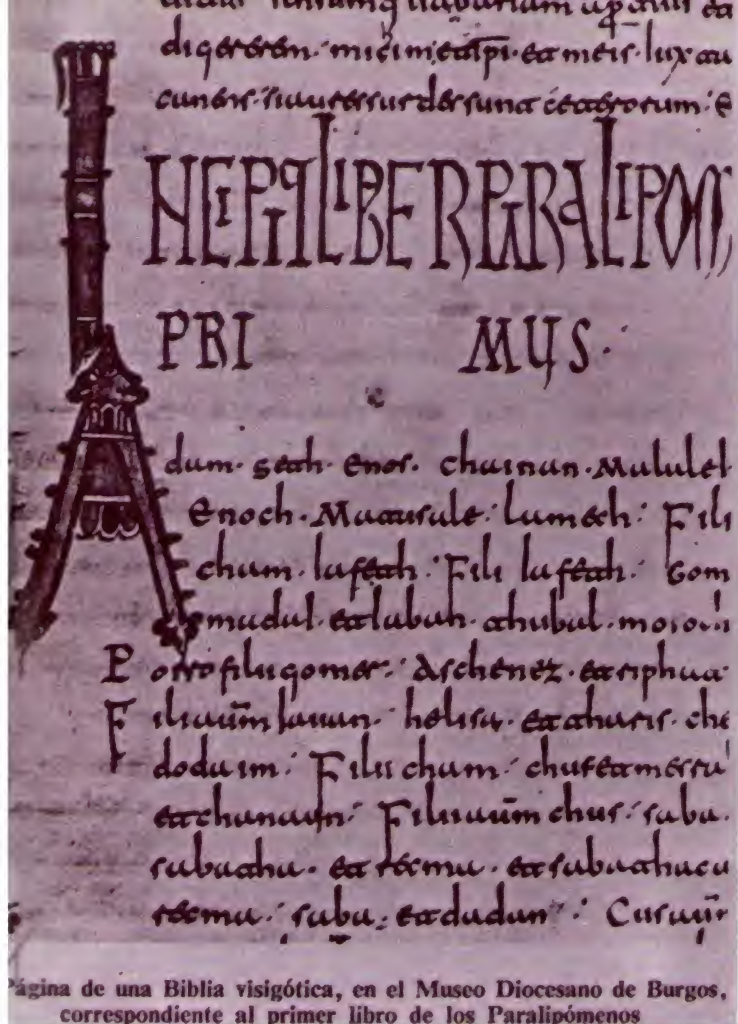 digererem et a meis
si aures sunt ceterorum : E
INCIPIT LIBER PARALIPOM
PRI MUS ·
Adam · seth · Enos · chainan · Malalel
Enoch · Matusale : lamech : Fili
cham · Iafeth : Fili Iafeth : Gom
madal · et Iaban · thubal · mosoch
Porro filii gomer : Aschenez · et riphat
Filii autm̄ Iauan · helisa · et tharsis · che
dodaim : Filii cham : chus et mesra
et chanaan : Filii autm̄ chus : saba ·
sabatha · et recma · et sabathaca
recma : saba · et dadan :
Página de una Biblia visigótica, en el Museo Diocesano de Burgos,
correspondiente al primer libro de los Paralipómenos